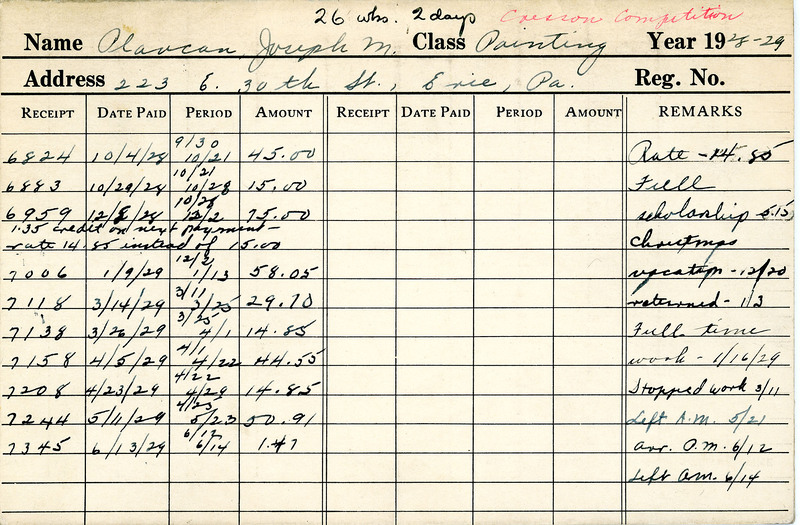 26 wks. 2 days Cresson Competition
Name Plavcan, Joseph M. Class Painting Year 1928-29
Address 223 E. 30th St., Erie, Pa. Reg. No.
RECEIPT DATE PAID PERIOD AMOUNT RECEIPT DATE PAID PERIOD AMOUNT REMARKS
9/30
6824 10/4/28 10/21 45.00 Rate - 14.85
10/21
6883 10/29/28 10/28 15.00 Full
10/28
6959 12/8/28 12/2 75.00 scholarship 5.15
1.35 credit on next payment -
rate 14.85 instead of 15.00 Christmas
12/2
7006 1/9/29 1/13 58.05 vacation - 12/20
3/11
7118 3/14/29 3/25 29.70 returned - 1/3
3/25
7138 3/26/29 4/1 14.85 Full time
4/1
7158 4/5/29 4/22 44.55 work - 1/16/29
4/22
7208 4/23/29 4/29 14.85 Stopped work 3/11
7244 5/11/29 5/23 50.91 Left A.M. 5/21
6/12
7345 6/13/29 6/14 1.47 arr. P.M. 6/12
Left A.M. 6/14